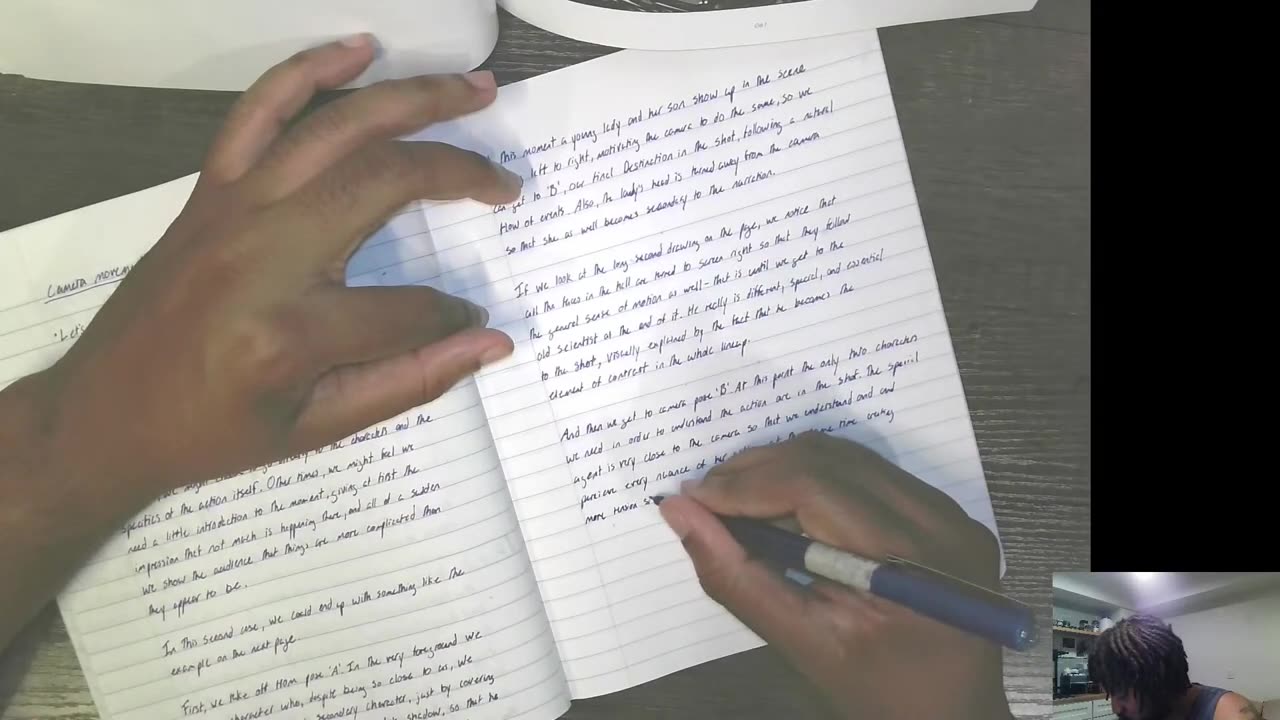 Camera movem
• Let's
to the characters and the
specifics of the action itself. Other times, we might feel we
need a little introduction to the moment, giving at first the
impression that not much is happening there, and all of a sudden
we show the audience that things are more complicated than
they appear to be.
In this second case, we could end up with something like the
example on the next page.
First, we take off from pose 'A' In the very foreground we
character who, despite being so close to us, we
secondary character, just by covering
shadow, so that he
061
this moment a young lady and her son show up in the scene
left to right, motivating the camera to do the same, so we
can get to 'B', our final Destination in the shot, following a natural
flow of events. Also, the lady's head is turned away from the camera
so that she as well becomes secondary to the narration.
If we look at the long second drawing on the page, we notice that
all the faces in the hall are turned to screen right so that they follow
the general sense of motion as well - that is until we get to the
old scientist at the end of it. He really is different, special, and essential
to the shot, visually explained by the fact that he becomes the
element of contrast in the whole lineup.
And then we get to camera pose 'B' At this point the only two characters
we need in order to understand the action are in the shot. The special
agent is very close to the camera so that we understand and and
perceive every nuance of her at the same time creating
more tension